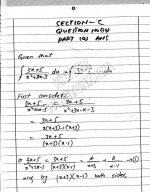 SECTION-C
QUESTION NO(14)
PART (a) ANS
Given that
∫ 3x+5 / x²+2x-3 dx = ∫ 3x+5 / dx
First consider:
3x+5 / x²+2x-3 = 3x+5 / x²+3x-x-3
= 3x+5 / x(x+3)-1(x+3)
= 3x+5 / (x+3)(x-1)
⇒ 3x+5 / x²+2x-3 = 3x+5 / (x+3)(x-1) = A / x+3 + B / x-1 →①
xing by (x+3)(x-1) both sides,